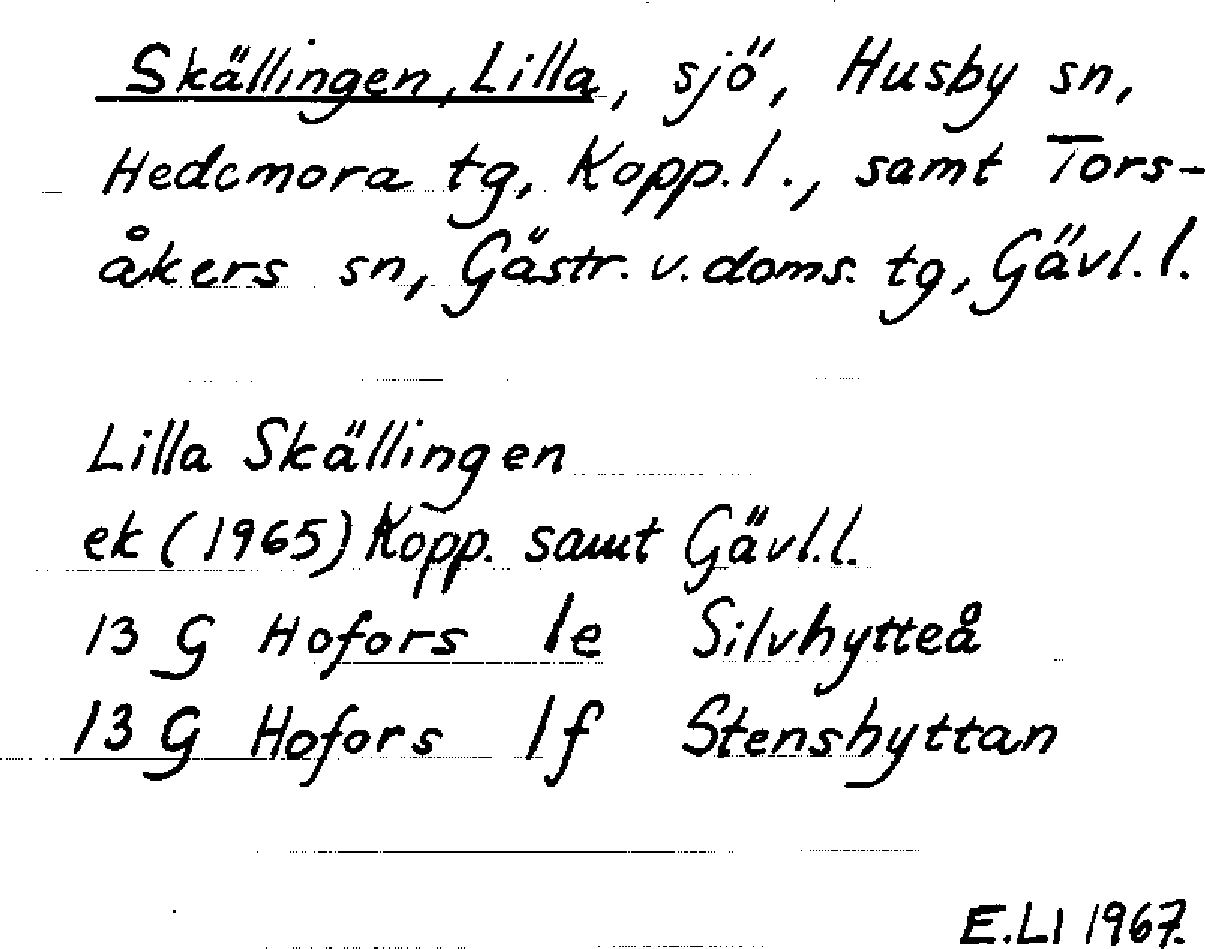 Skällingen, Lilla, sjö, Husby sn,
Hedemora tg, Kopp. l., samt Tors-
åkers sn, Gästr. v. doms. tg, Gävl. l.
Lilla Skällingen
ek (1965) Kopp. samt Gävl. l.
13 G Hofors 1e Silvhytteå
13 G Hofors 1f Stenshyttan
E.LI 1967.